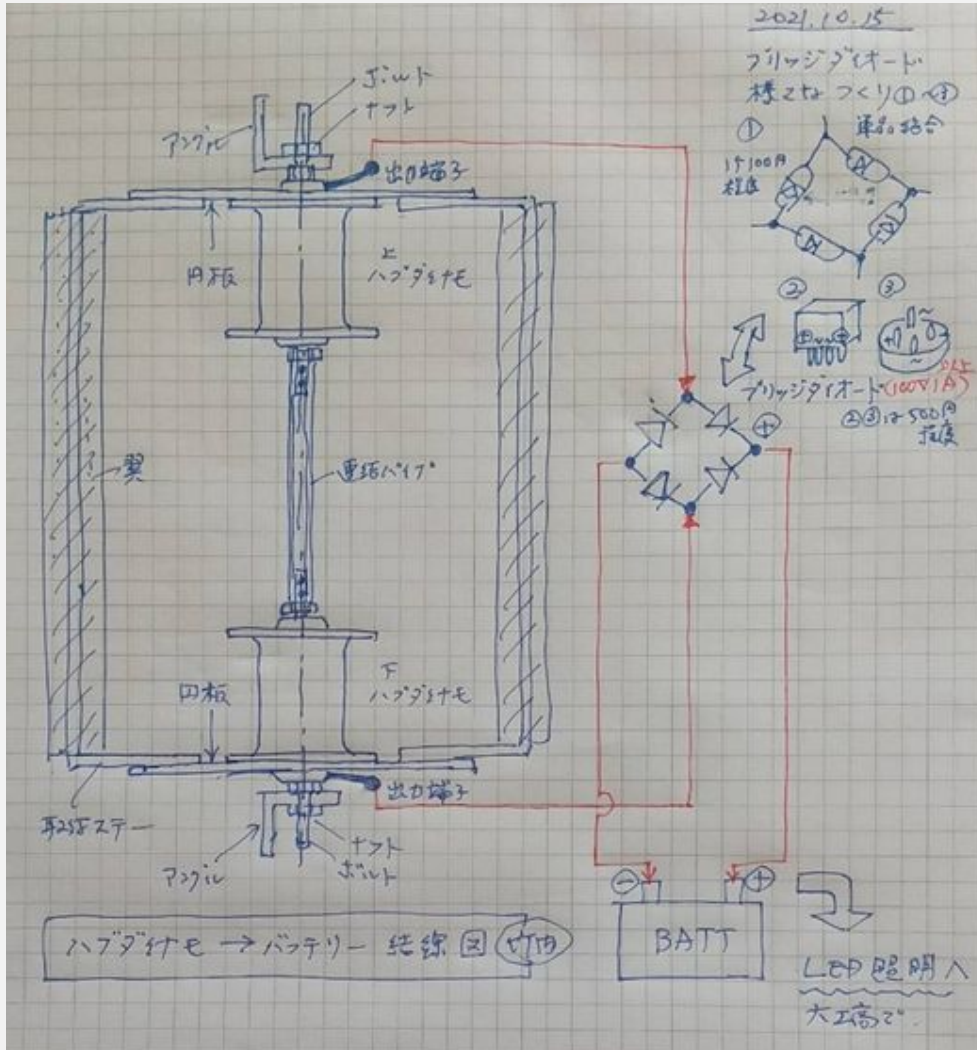 2021.10.15
ブリッジダイオード
様々な つくり①~③
① 単品結合
1ケ100円
程度
②
③
ブリッジダイオード(100V1A)以上
②③は500円
程度
ボルト
ナット
アングル
出力端子
円板
上
ハブダイナモ
翼
連結パイプ
下
ハブダイナモ
円板
出力端子
取付ステー
ナット
ボルト
アングル
⊕
⊖
⊕
BATT
ハブダイナモ→バッテリー 結線図 竹内
LED照明へ
大工高で